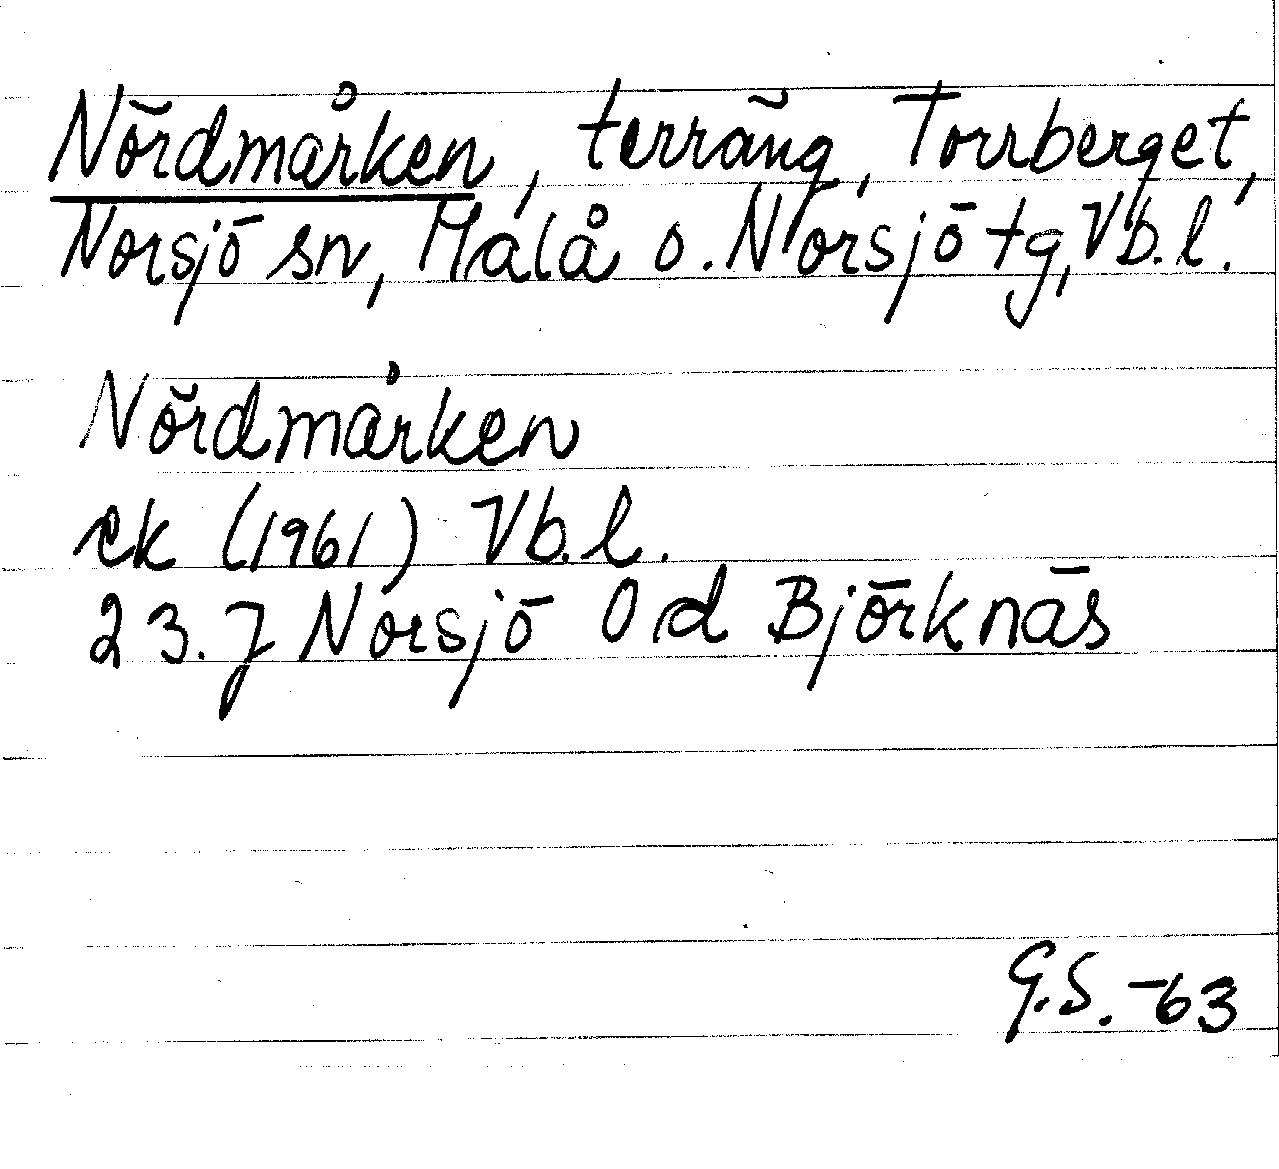 Nördmårken, terräng, Torrberget,
Norsjö sn, Malå o. Norsjö tg, Vb.l.
Nördmårken
ek (1961) Vb.l.
23.J Norsjö 0 d Björknäs
G.S. -63